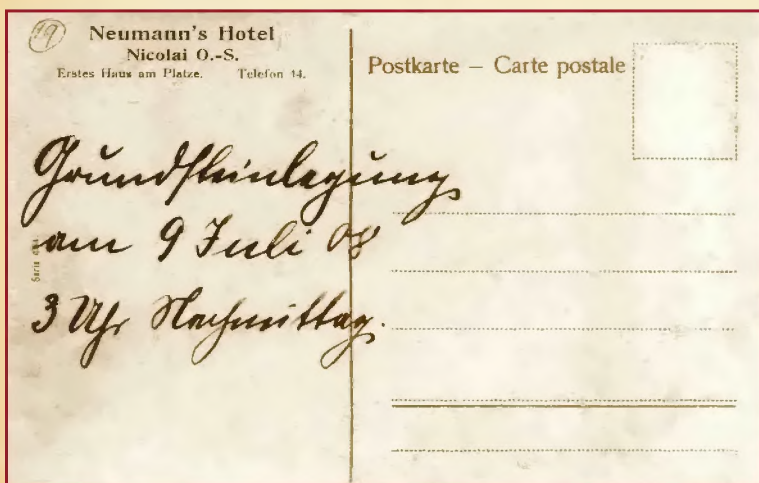 19
Neumann's Hotel
Nicolai O.-S.
Erstes Haus am Platze. Telefon 14.
Postkarte – Carte postale
Grundsteinlegung
am 9 Juli 08
3 Uhr Nachmittag.
Serie